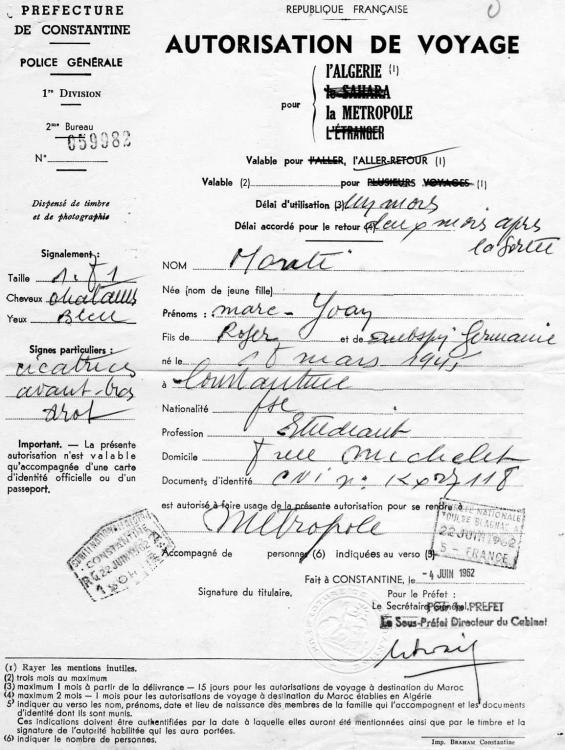 PREFECTURE
DE CONSTANTINE
POLICE GÉNÉRALE
1re DIVISION
2me Bureau
059982
N°
Dispensé de timbre
et de photographie
Signalement :
Taille 1.81
Cheveux chatains
Yeux Bleu
Signes particuliers :
cicatrices
avant-bras
droit
Important. — La présente
autorisation n'est valable
qu'accompagnée d'une carte
d'identité officielle ou d'un
passeport.
REPUBLIQUE FRANÇAISE
AUTORISATION DE VOYAGE
pour
l'ALGERIE (1)
le SAHARA
la METROPOLE
L'ÉTRANGER
Valable pour l'ALLER, l'ALLER-RETOUR (1)
Valable (2) pour PLUSIEURS VOYAGES (1)
Délai d'utilisation (3) un mois
Délai accordé pour le retour (4) deux mois après
la sortie
NOM
Née (nom de jeune fille)
Prénoms : marc - Yvan
Fils de Roger et de Germaine
né le 18 mars 1945
à Constantine
Nationalité fse
Profession Etudiant
Domicile rue Michelet
Documents d'identité CNI n°
est autorisé à faire usage de la présente autorisation pour se rendre à
Métropole
Accompagné de personnes (6) indiquées au verso (5)
Fait à CONSTANTINE, le - 4 JUIN 1962
CONSTANTINE
22 JUIN 1962
22 JUIN 1962
5 - FRANCE
Signature du titulaire,
Pour le Préfet :
Le Secrétaire Général,
Pour le PREFET
Le Sous-Préfet Directeur du Cabinet
(1) Rayer les mentions inutiles.
(2) trois mois au maximum
(3) maximum 1 mois à partir de la délivrance — 15 jours pour les autorisations de voyage à destination du Maroc
(4) maximum 2 mois - 1 mois pour les autorisations de voyage à destination du Maroc établies en Algérie
5) indiquer au verso les nom, prénoms, date et lieu de naissance des membres de la famille qui l'accompagnent et les documents
d'identité dont ils sont munis.
Ces indications doivent être authentifiées par la date à laquelle elles auront été mentionnées ainsi que par le timbre et la
signature de l'autorité habilité qui les aura portées.
(6) indiquer le nombre de personnes.
Imp. BRAHAM Constantine